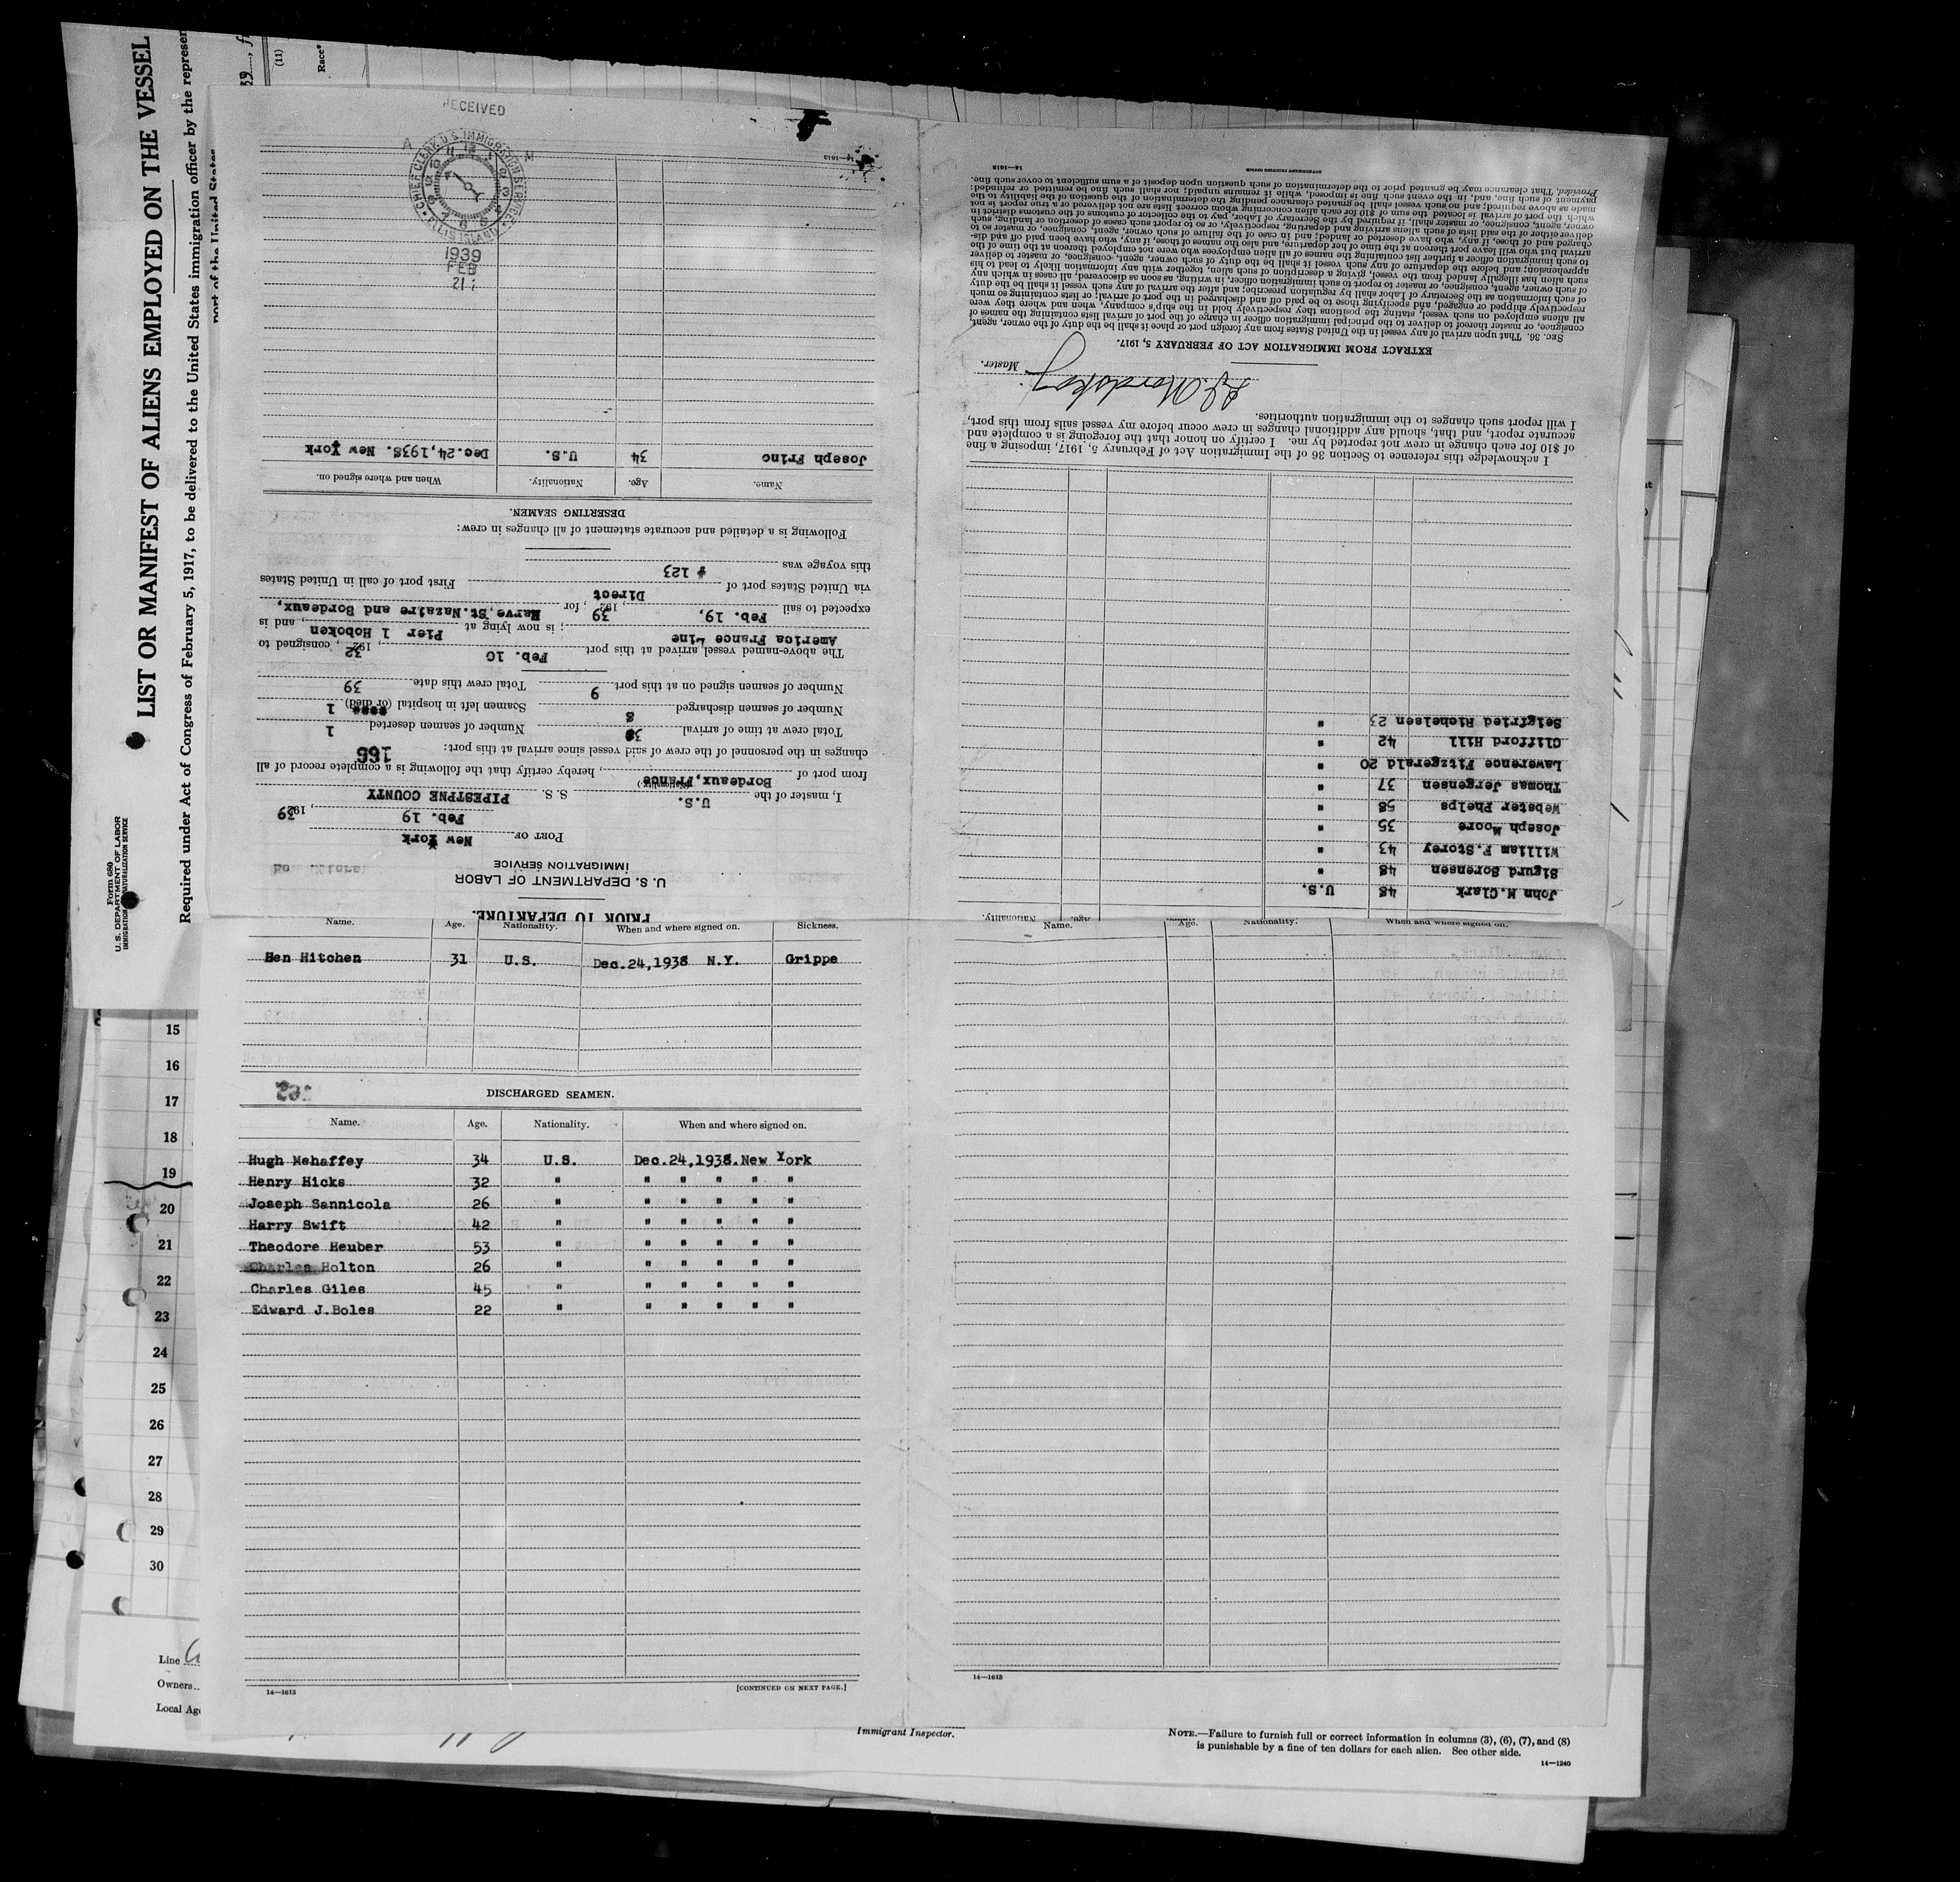 LIST OR MANIFEST OF ALIENS EMPLOYED ON THE VESSEL
Required under Act of Congress of February 5, 1917, to be delivered to the United States immigration officer by the represen
port of the United States
Form 680
U. S. DEPARTMENT OF LABOR
IMMIGRATION NATURALIZATION SERVICE
(11)
Race*
RECEIVED
CHIEF CLERK, U.S. IMMIGRATION SERVICE
ELLIS ISLAND
1939
FEB
21
PRIOR TO DEPARTURE.
U. S. DEPARTMENT OF LABOR
IMMIGRATION SERVICE
PORT OF New York
Feb. 19, 1929 39
I, master of the U.S. S. S. PIPESTPNE COUNTY
(Nationality)
from port of Bordeaux, France, hereby certify that the following is a complete record of all
changes in the personnel of the crew of said vessel since arrival at this port: 166
Total crew at time of arrival 38 Number of seamen deserted 1
Number of seamen discharged 8 Seamen left in hospital (or died) 1
Number of seamen signed on at this port 9 Total crew this date 39
The above-named vessel arrived at this port Feb. 16, 192 , consigned to
America France Line ; is now lying at Pier 1 Hoboken, and is
expected to sail Feb. 19, 192 39, for Havre, St.Nazaire and Bordeaux,
via United States port of Direct First port of call in United States
this voyage was # 123
Following is a detailed and accurate statement of all changes in crew:
DESERTING SEAMEN.
Name. Age. Nationality. When and where signed on.
Joseph Frinc 34 U.S. Dec.24,1938. New York
14—1613
Name. Age. Nationality. When and where signed on. Sickness.
Ben Hitchen 31 U.S. Dec.24,1938 N.Y. Grippe
DISCHARGED SEAMEN.
Name. Age. Nationality. When and where signed on.
Hugh Mehaffey 34 U.S. Dec.24,1938.New York
Henry Hicks 32 " " " " " "
Joseph Sannicola 26 " " " " " "
Harry Swift 42 " " " " " "
Theodore Heuber 53 " " " " " "
Charles Holton 26 " " " " " "
Charles Giles 45 " " " " " "
Edward J.Boles 22 " " " " " "
14—1613
[CONTINUED ON NEXT PAGE.]
Name. Age. Nationality.
John M.Clark 48 U.S.
Sigurd Sorensen 48 "
William F.Storey 43 "
Joseph Moore 35 "
Webster Phelps 58 "
Thomas Jergensen 37 "
Lawerence Fitzgerald 20 "
Clifford Hill 42 "
Seigfried Richelsen 23 "
I acknowledge this reference to Section 36 of the Immigration Act of February 5, 1917, imposing a fine
of $10 for each change in crew not reported by me. I certify on honor that the foregoing is a complete and
accurate report, and that, should any additional changes in crew occur before my vessel sails from this port,
I will report such changes to the immigration authorities.
Master.
EXTRACT FROM IMMIGRATION ACT OF FEBRUARY 5, 1917.
SEC. 36. That upon arrival of any vessel in the United States from any foreign port or place it shall be the duty of the owner, agent,
consignee, or master thereof to deliver to the principal immigration officer in charge of the port of arrival lists containing the names of
all aliens employed on such vessel, stating the positions they respectively hold in the ship's company, when and where they were
respectively shipped or engaged, and specifying those to be paid off and discharged in the port of arrival; or lists containing so much
of such information as the Secretary of Labor shall by regulation prescribe; and after the arrival of any such vessel it shall be the duty
of such owner, agent, consignee, or master to report to such immigration officer, in writing, as soon as discovered, all cases in which any
such alien has illegally landed from the vessel, giving a description of such alien, together with any information likely to lead to his
apprehension; and before the departure of any such vessel it shall be the duty of such owner, agent, consignee, or master to deliver
to such immigration officer a further list containing the names of all alien employees who were not employed thereon at the time of the
arrival but who will leave port thereon at the time of her departure, and also the names of those, if any, who have been paid off and dis-
charged and of those, if any, who have deserted or landed; and in case of the failure of such owner, agent, consignee, or master so to
deliver either of the said lists of such aliens arriving and departing, respectively, or so to report such cases of desertion or landing, such
owner, agent, consignee, or master shall, if required by the Secretary of Labor, pay to the collector of customs of the customs district in
which the port of arrival is located the sum of $10 for each alien concerning whom correct lists are not delivered or a true report is not
made as above required; and no such vessel shall be granted clearance pending the determination of the question of the liability to the
payment of such fine, and, in the event such fine is imposed, while it remains unpaid; nor shall such fine be remitted or refunded:
Provided, That clearance may be granted prior to the determination of such question upon deposit of a sum sufficient to cover such fine.
GOVERNMENT PRINTING OFFICE
14—1613
Name. Age. Nationality. When and where signed on.
14—1613
15
16
17
18
19
20
21
22
23
24
25
26
27
28
29
30
Line
Owners
Local Age
Immigrant Inspector.
NOTE.—Failure to furnish full or correct information in columns (3), (6), (7), and (8)
is punishable by a fine of ten dollars for each alien. See other side.
14—1240